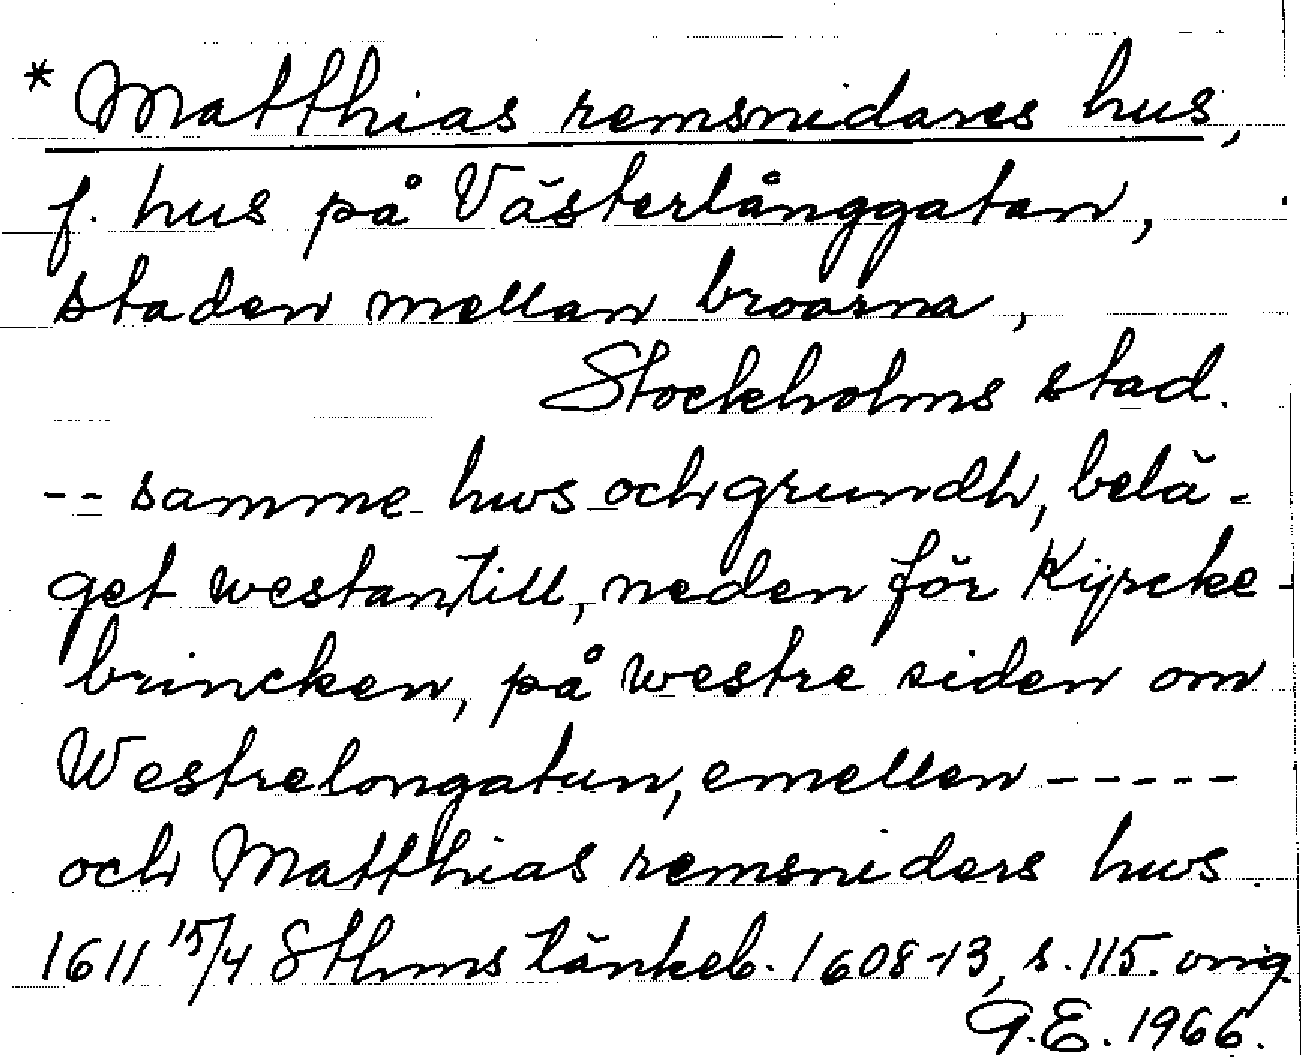 * Matthias remsnidares hus,
f. hus på Västerlånggatan,
staden mellan broarna,
Stockholms stad.
-- samme hws och grundh, belä-
get westan till, neden för Kyrcke-
brincken, på westre siden om
Westrelongatun, emellen -----
och Matthias remsniders hws.
1611 15/4 Sthms tänkeb. 1608-13, s. 115. orig.
G.E. 1966.